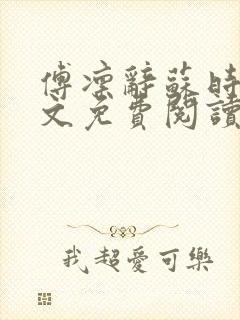 傅凛辭蘇時
文免費閱讀
我超愛可樂